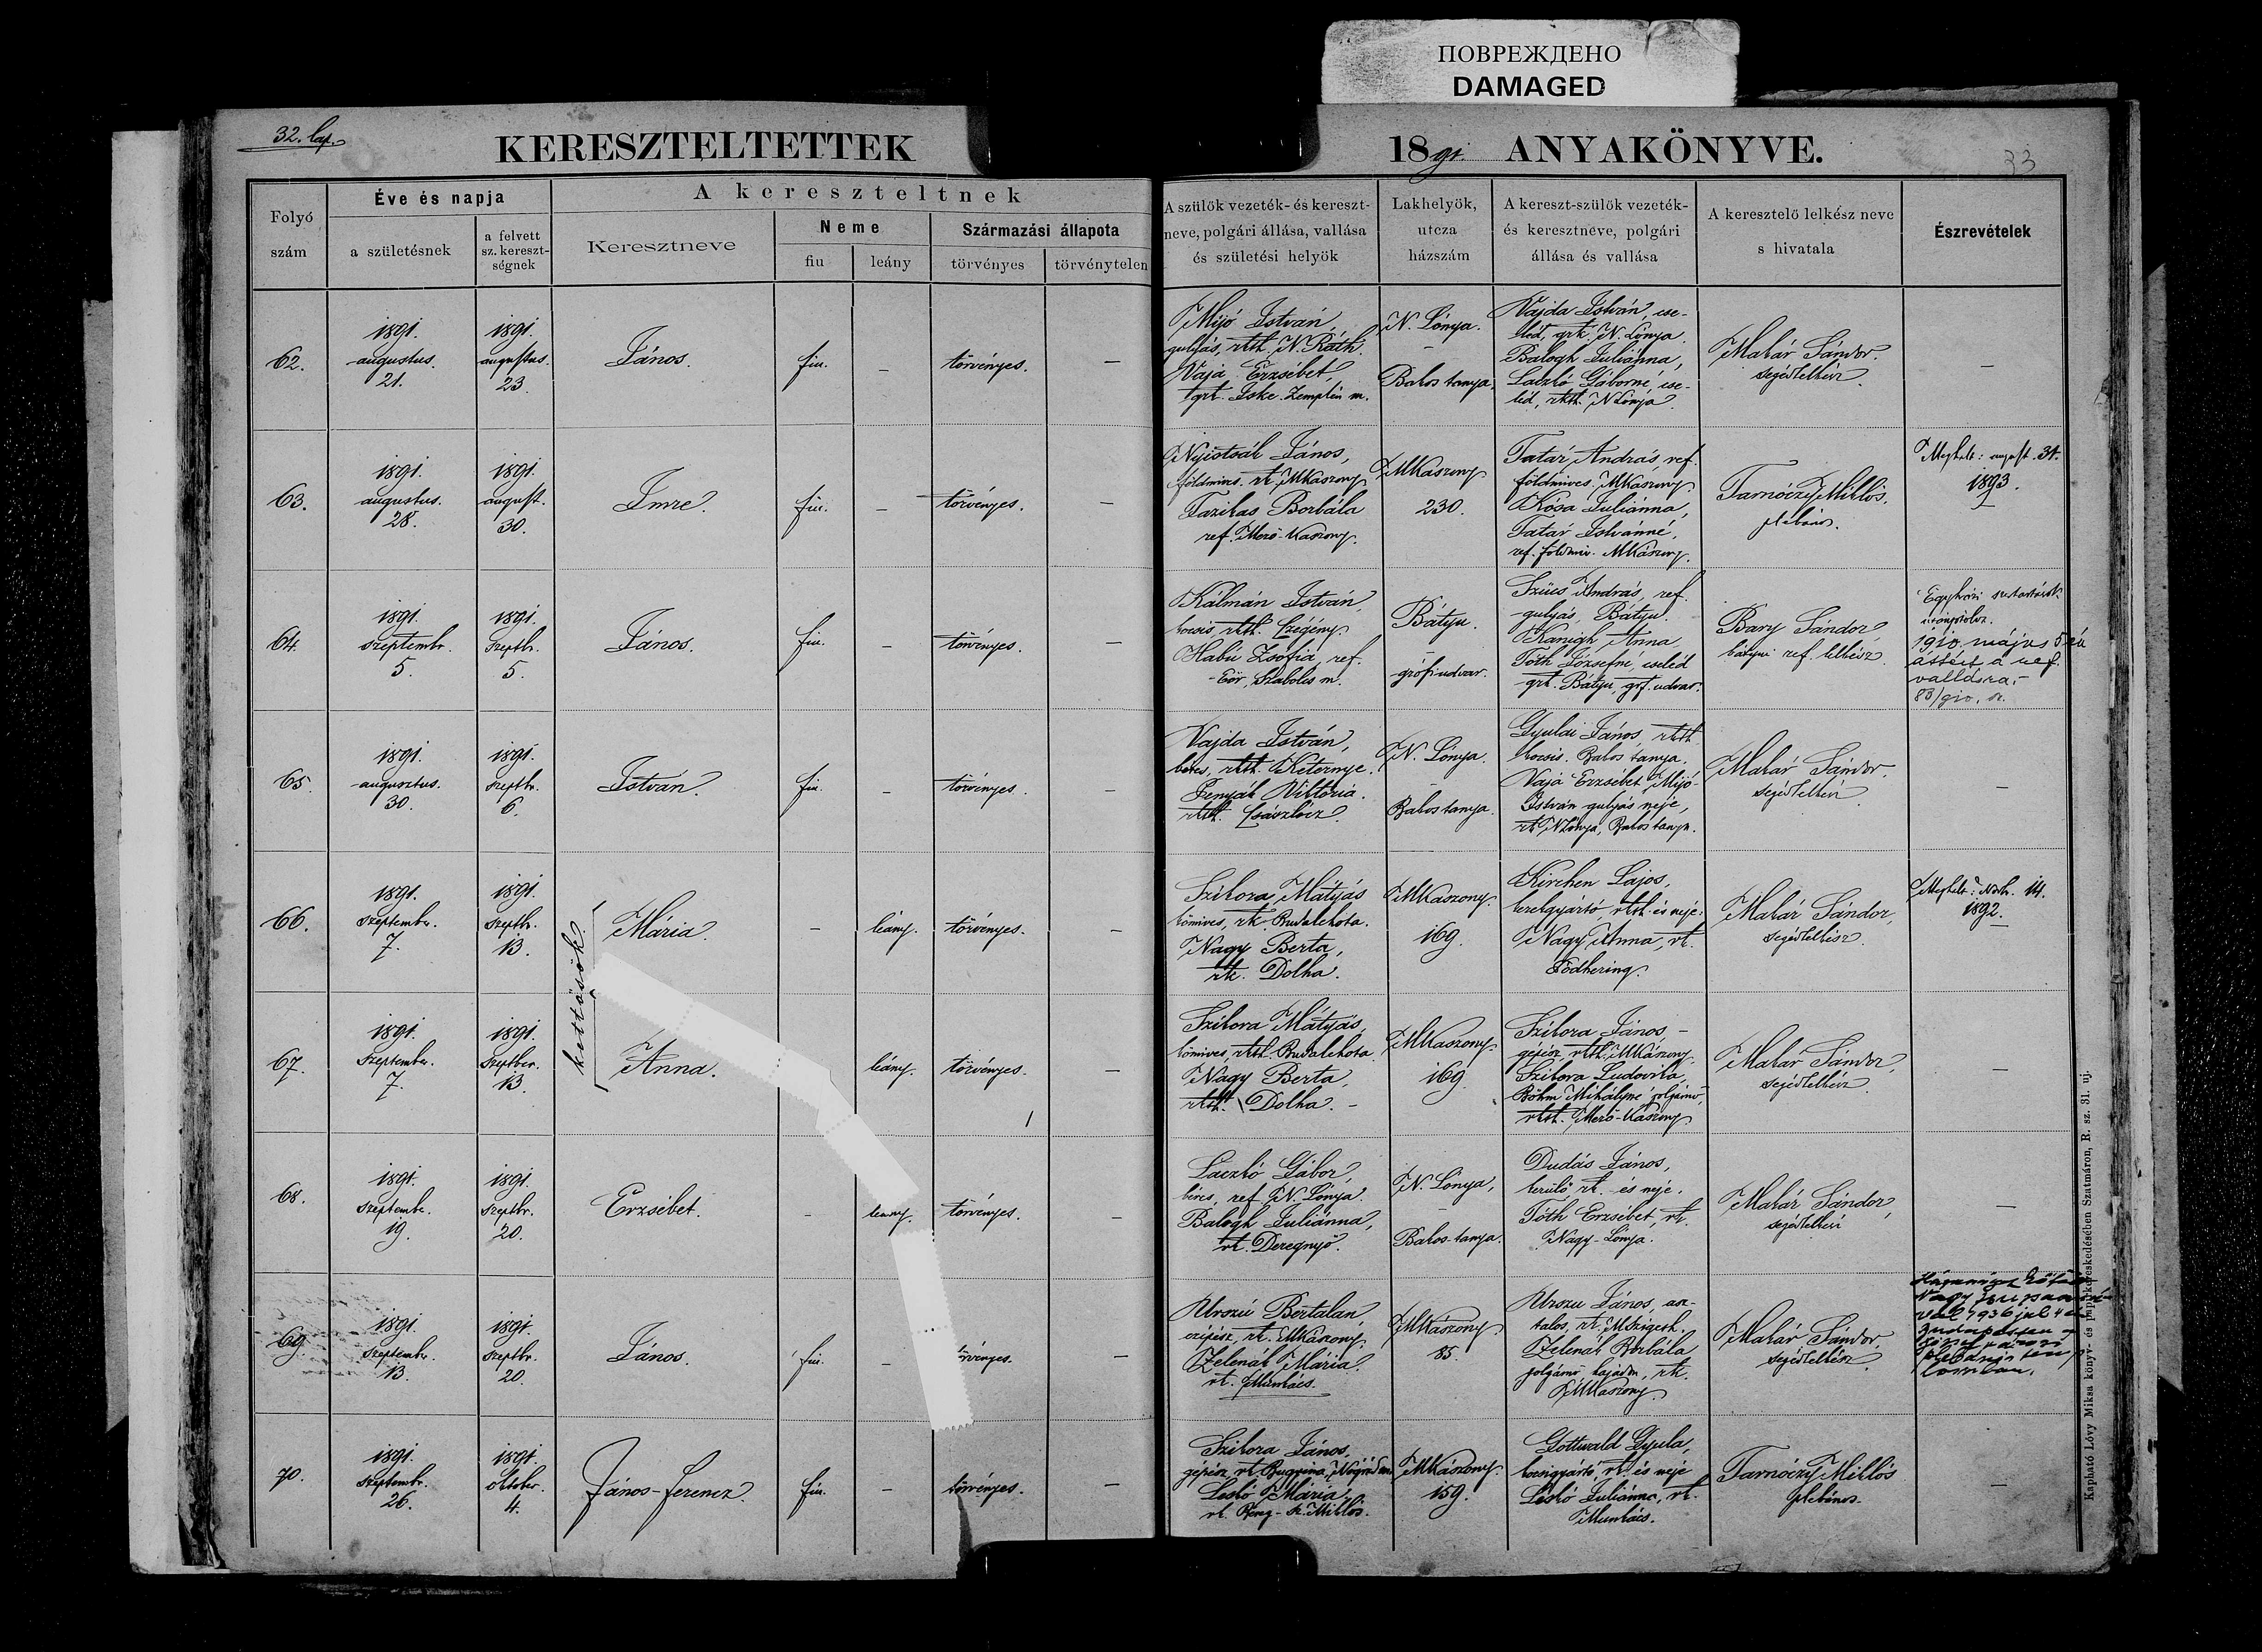 ПОВРЕЖДЕНО
DAMAGED
32. lap.
KERESZTELTETTEK
1891 ANYAKÖNYVE.
33
Folyó
szám
Éve és napja
a születésnek
a felvett
sz. kereszt-
ségnek
A kereszteltnek
Keresztneve
Neme
fiu
leány
Származási állapota
törvényes
törvénytelen
A szülök vezeték- és kereszt-
neve, polgári állása, vallása
és születési helyök
Lakhelyök,
utcza
házszám
A kereszt-szülök vezeték-
és keresztneve, polgári
állása és vallása
A keresztelö lelkész neve
s hivatala
Észrevételek
62.
1891.
augustus.
21.
1891.
augustus.
23.
János.
fiu.
–
törvényes.
–
Mijó István,
gulyás, rkth. N. Ráth.
Vaja Erzsébet,
grk. Iske. Zemplén m.
N. Lónya.
–
Bakos tanya.
Vajda István, cse-
léd, grk. N. Lónya.
Balogh Juliánna,
Laczkó Gáborné, cse-
léd, rkth. N Lónya.
Makár Sándor.
segédlelkész.
–
63.
1891.
augustus.
28.
1891.
august.
30.
Imre.
fiu.
–
törvényes.
János,
földmives. rk. MKaszony
Fazikas Borbála
ref. Mező-Kaszony.
MKaszony
230.
Tatár András, ref.
földmives. MKaszony.
Kósa Juliánna,
Tatár Istvánné,
ref. földmiv. MKászony.
Tarnóczy Miklós,
plébános.
Meghalt: august. 31.
1893.
64.
1891.
szeptembr.
5.
1891.
Szeptbr.
5.
János.
fiu.
–
törvényes.
–
Kálmán István,
kocsis rkth. Czégény.
Habú Zsófia, ref.
Eör, Szabolcs m.
Bátyu.
–
grófi udvar.
Szücs András, ref.
gulyás, Bátyu.
Kanigh Anna
Tóth Józsefné, cseléd
grk. Bátyu, grf. udvar.
Bary Sándor
bátyui ref. lelkész.
1910, május 5-én
áttért a ref.
vallásra.-
83/910. sz.
65.
1891.
augusztus.
30.
1891.
szeptbr.
6.
István.
fiu.
–
törvényes.
–
Vajda István,
béres, rkth. Keternye.
Penyák Viktória.
rkth. Császlócz.
N. Lónya.
–
Bakos tanya.
Gyulai János, rkth
kocsis. Bakos tanya.
Vaja Erzsébet, Mijó-
István gulyás neje,
rk N Lónya, Bakos tanya.
Makár Sándor.
segédlelkész
–
66.
1891.
Szeptembr.
7.
1891.
Szeptbr.
13.
kettősök
Mária.
–
leány.
törvényes.
–
Szikora Mátyás
kömives, rk. Budalehota.
Nagy Berta,
rk. Dolha.
MKaszony.
169.
Kirchen Lajos,
kerékgyártó, rkth. és neje:
Nagy Anna, rk.
Pódhering.
Makár Sándor,
segédlelkész.
1892.
67.
1891.
Szeptember.
7.
1891.
Szeptber.
13.
Anna.
leány.
törvényes.
–
Szikora Mátyás,
kömives, rkth. Budalehota.
Nagy Berta,
rkth. Dolha. –
MKaszony.
169.
Szikora János –
gépész, rkth. MKászony.
Szikora Ludovika,
Böhm Mihályné polgárnő,
rkth. Mező-Kászony.
Makár Sándor,
segédlelkész
–
68.
1891.
Szeptembr.
19.
1891.
Szeptbr.
20.
Erzsébet.
–
leány.
törvényes.
–
Laczkó Gábor,
béres, ref. N. Lónya.
Balogh Juliánna,
rk. Deregnyő.
N. Lónya,
–
Bakos-tanya.
Dudás János,
kerülő, rk. és neje.
Tóth Erzsébet, rk.
Nagy-Lónya.
Makár Sándor,
segédlelkész
–
69.
1891.
Szeptembr.
13.
1891.
Szeptbr.
20.
János.
fiu.
–
törvényes.
–
Urszu Bertalan,
czipész, rk. MKászony.
Zelenák Mária,
rk. Munkács.
MKászony.
85.
Urszu János, asz-
talos, rk. MSziget.
Zelenák Borbála
polgárnő, hajadon, rk.
MKaszony.
Makár Sándor,
segédlelkész
Házasságot kötött
Nagy Zsuzsanná-
val 1936 jul 4-én
Budapesten
70.
1891.
Szeptembr.
26.
1891.
Oktober.
4.
János-Ferencz.
fiu.
–
törvényes.
–
Szikora János,
gépész, rk. Nógrád m.
Leskó Mária
rk. Bereg-Sz. Miklós.
MKászony.
159.
Gottwald Gyula,
kocsigyártó, rk. és neje
Leskó Juliánna, rk.
Munkács.
Tarnóczy Miklós
plébános.
–
Kapható Lövy Miksa könyv- és papirkereskedésében Szatmáron, R. sz. 31. uj.